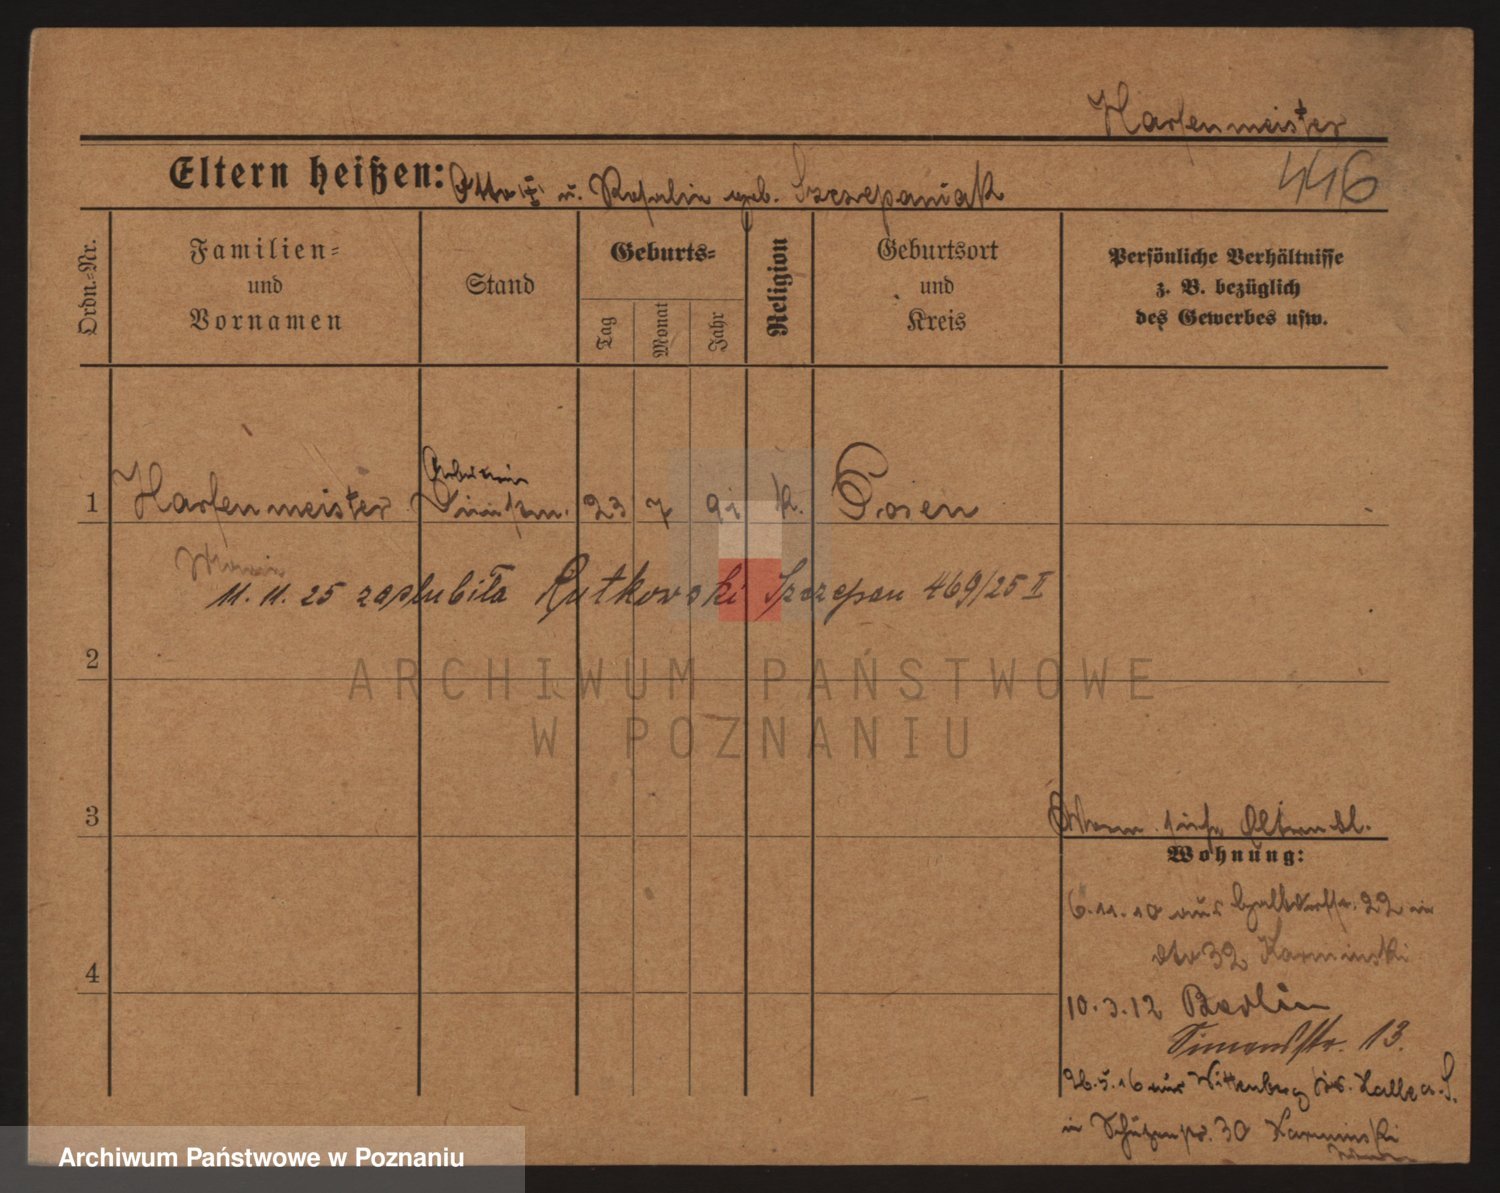 Harfenmeister
Eltern heißen: Otto † u. Rosalie geb. Szczepaniak
446
Ordn.-Nr.
Familien-
und
Vornamen
Stand
Geburts-
Tag
Monat
Jahr
Religion
Geburtsort
und
Kreis
Persönliche Verhältnisse
z. B. bezüglich
des Gewerbes usw.
1 Harfenmeister 23 7 91 k. Posen
11. 11. 25 zaślubiła Rutkowski Szczepan 469/25 II
2
ARCHIWUM PAŃSTWOWE
W POZNANIU
3
siehe Eltern bl.
Wohnung:
6.11.10 aus 22 in
dto 32 Kaminski
10.3.12 Berlin
Simeonstr. 13.
4
26.5.16 aus Wittenberg Halle a. S.
in Schützenstr. 30 Kaminski
Archiwum Państwowe w Poznaniu